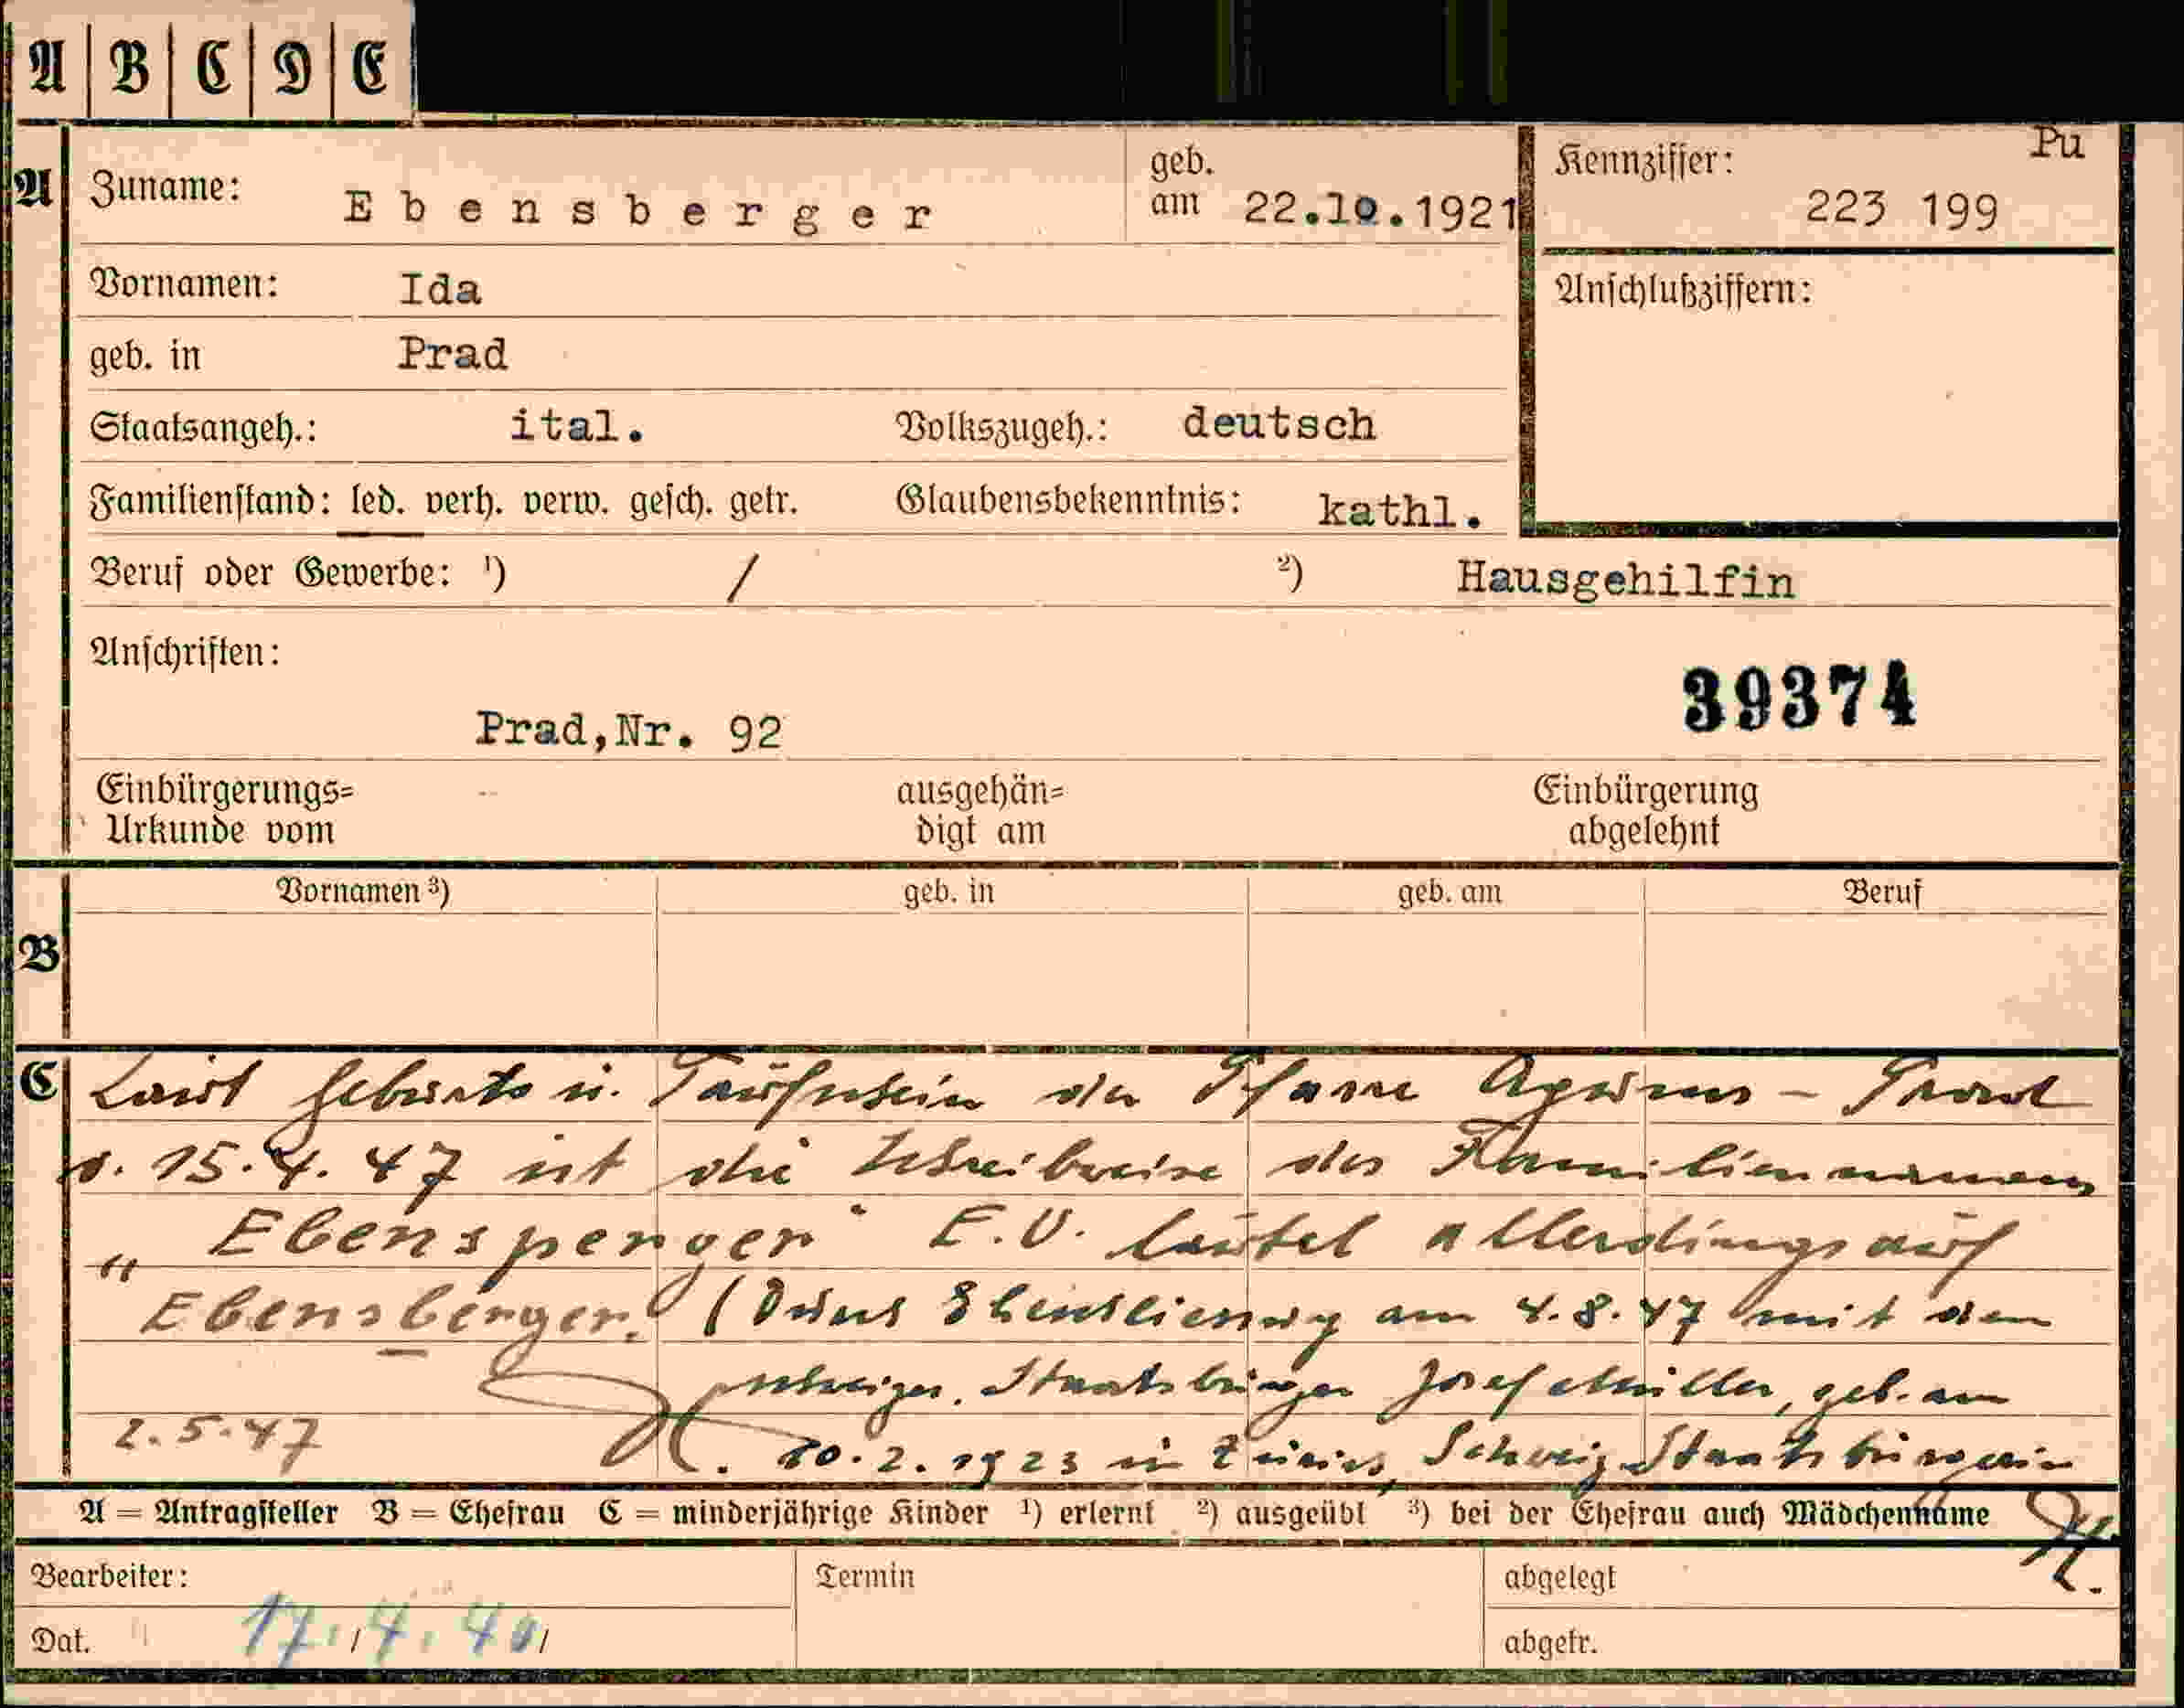 A B C D E
A Zuname: Ebensberger geb. am 22.10.1921 Kennziffer: Pu 223 199
Vornamen: Ida Anschlußziffern:
geb. in Prad
Staatsangeh.: ital. Volkszugeh.: deutsch
Familienstand: led. verh. verw. gesch. getr. Glaubensbekenntnis: kathl.
Beruf oder Gewerbe: ¹) / ²) Hausgehilfin
Anschriften:
39374
Prad,Nr. 92
Einbürgerungs= ausgehän= Einbürgerung
Urkunde vom digt am abgelehnt
Vornamen ³) geb. in geb. am Beruf
B
C Laut Geburts u. Taufschein der Pfarre Agums - Prad
v. 15.4.47 ist die Schreibweise des Familiennamens
„Ebensperger" E.U. lautet allerdings auf
Ebensberger. (Durch Eheschliessung am 4.8.47 mit dem
schweizer. Staatsbürger Josef Müller, geb. am
2.5.47 10.2.1923 in Zürich, Schweiz. Staatsbürgerin
A = Antragsteller B = Ehefrau C = minderjährige Kinder ¹) erlernt ²) ausgeübt ³) bei der Ehefrau auch Mädchenname
Bearbeiter: Termin abgelegt
Dat. 17./4.40/ abgetr.